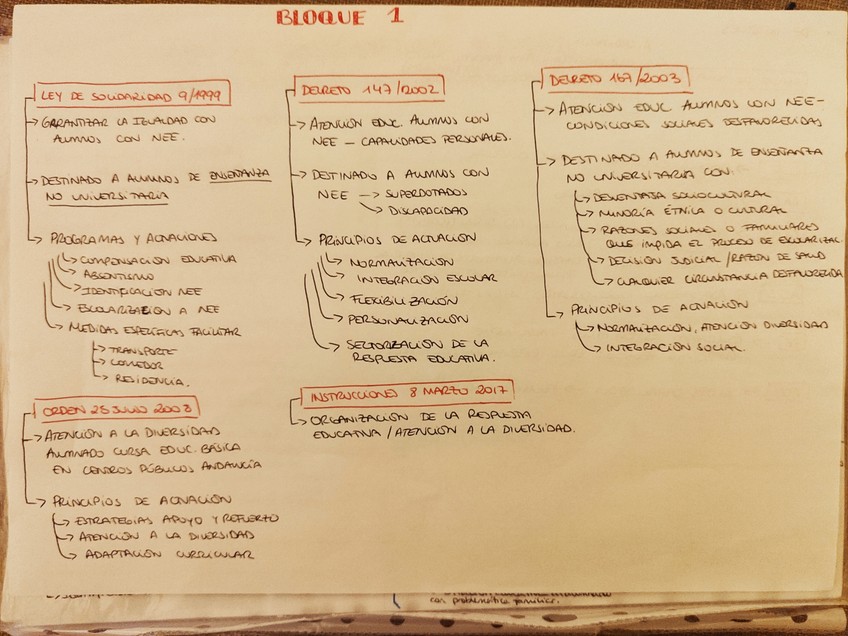 BLOQUE 1
LEY DE SOLIDARIDAD 9/1999
GARANTIZAR LA IGUALDAD CON
ALUMNOS CON NEE.
DESTINADO A ALUMNOS DE ENSEÑANZA
NO UNIVERSITARIA
PROGRAMAS Y ACTUACIONES
COMPENSACIÓN EDUCATIVA
ABSENTISMO
IDENTIFICACIÓN NEE
ESCOLARIZACIÓN A NEE
MEDIDAS ESPECÍFICAS FACILITAR
TRANSPORTE
COMEDOR
RESIDENCIA.
DECRETO 147/2002
ATENCIÓN EDUC. ALUMNOS CON
NEE – CAPACIDADES PERSONALES.
DESTINADO A ALUMNOS CON
NEE → SUPERDOTADOS
DISCAPACIDAD
PRINCIPIOS DE ACTUACIÓN
NORMALIZACIÓN
INTEGRACIÓN ESCOLAR
FLEXIBILIZACIÓN
PERSONALIZACIÓN
SECTORIZACIÓN DE LA
RESPUESTA EDUCATIVA.
DECRETO 167/2003
ATENCIÓN EDUC. ALUMNOS CON NEE –
CONDICIONES SOCIALES DESFAVORECIDAS
DESTINADO A ALUMNOS DE ENSEÑANZA
NO UNIVERSITARIA CON:
DESVENTAJA SOCIOCULTURAL
MINORÍA ÉTNICA O CULTURAL
RAZONES SOCIALES O FAMILIARES
QUE IMPIDA EL PROCESO DE ESCOLARIZAC.
DECISIÓN JUDICIAL / RAZÓN DE SALUD
CUALQUIER CIRCUNSTANCIA DESFAVORECIDA
PRINCIPIOS DE ACTUACIÓN
NORMALIZACIÓN, ATENCIÓN DIVERSIDAD
INTEGRACIÓN SOCIAL.
ORDEN 25 JULIO 2008
ATENCIÓN A LA DIVERSIDAD
ALUMNADO CURSA EDUC. BÁSICA
EN CENTROS PÚBLICOS ANDALUCÍA
PRINCIPIOS DE ACTUACIÓN
ESTRATEGIAS APOYO Y REFUERZO
ATENCIÓN A LA DIVERSIDAD
ADAPTACIÓN CURRICULAR
INSTRUCCIONES 8 MARZO 2017
ORGANIZACIÓN DE LA RESPUESTA
EDUCATIVA / ATENCIÓN A LA DIVERSIDAD.
con problemática familiar.